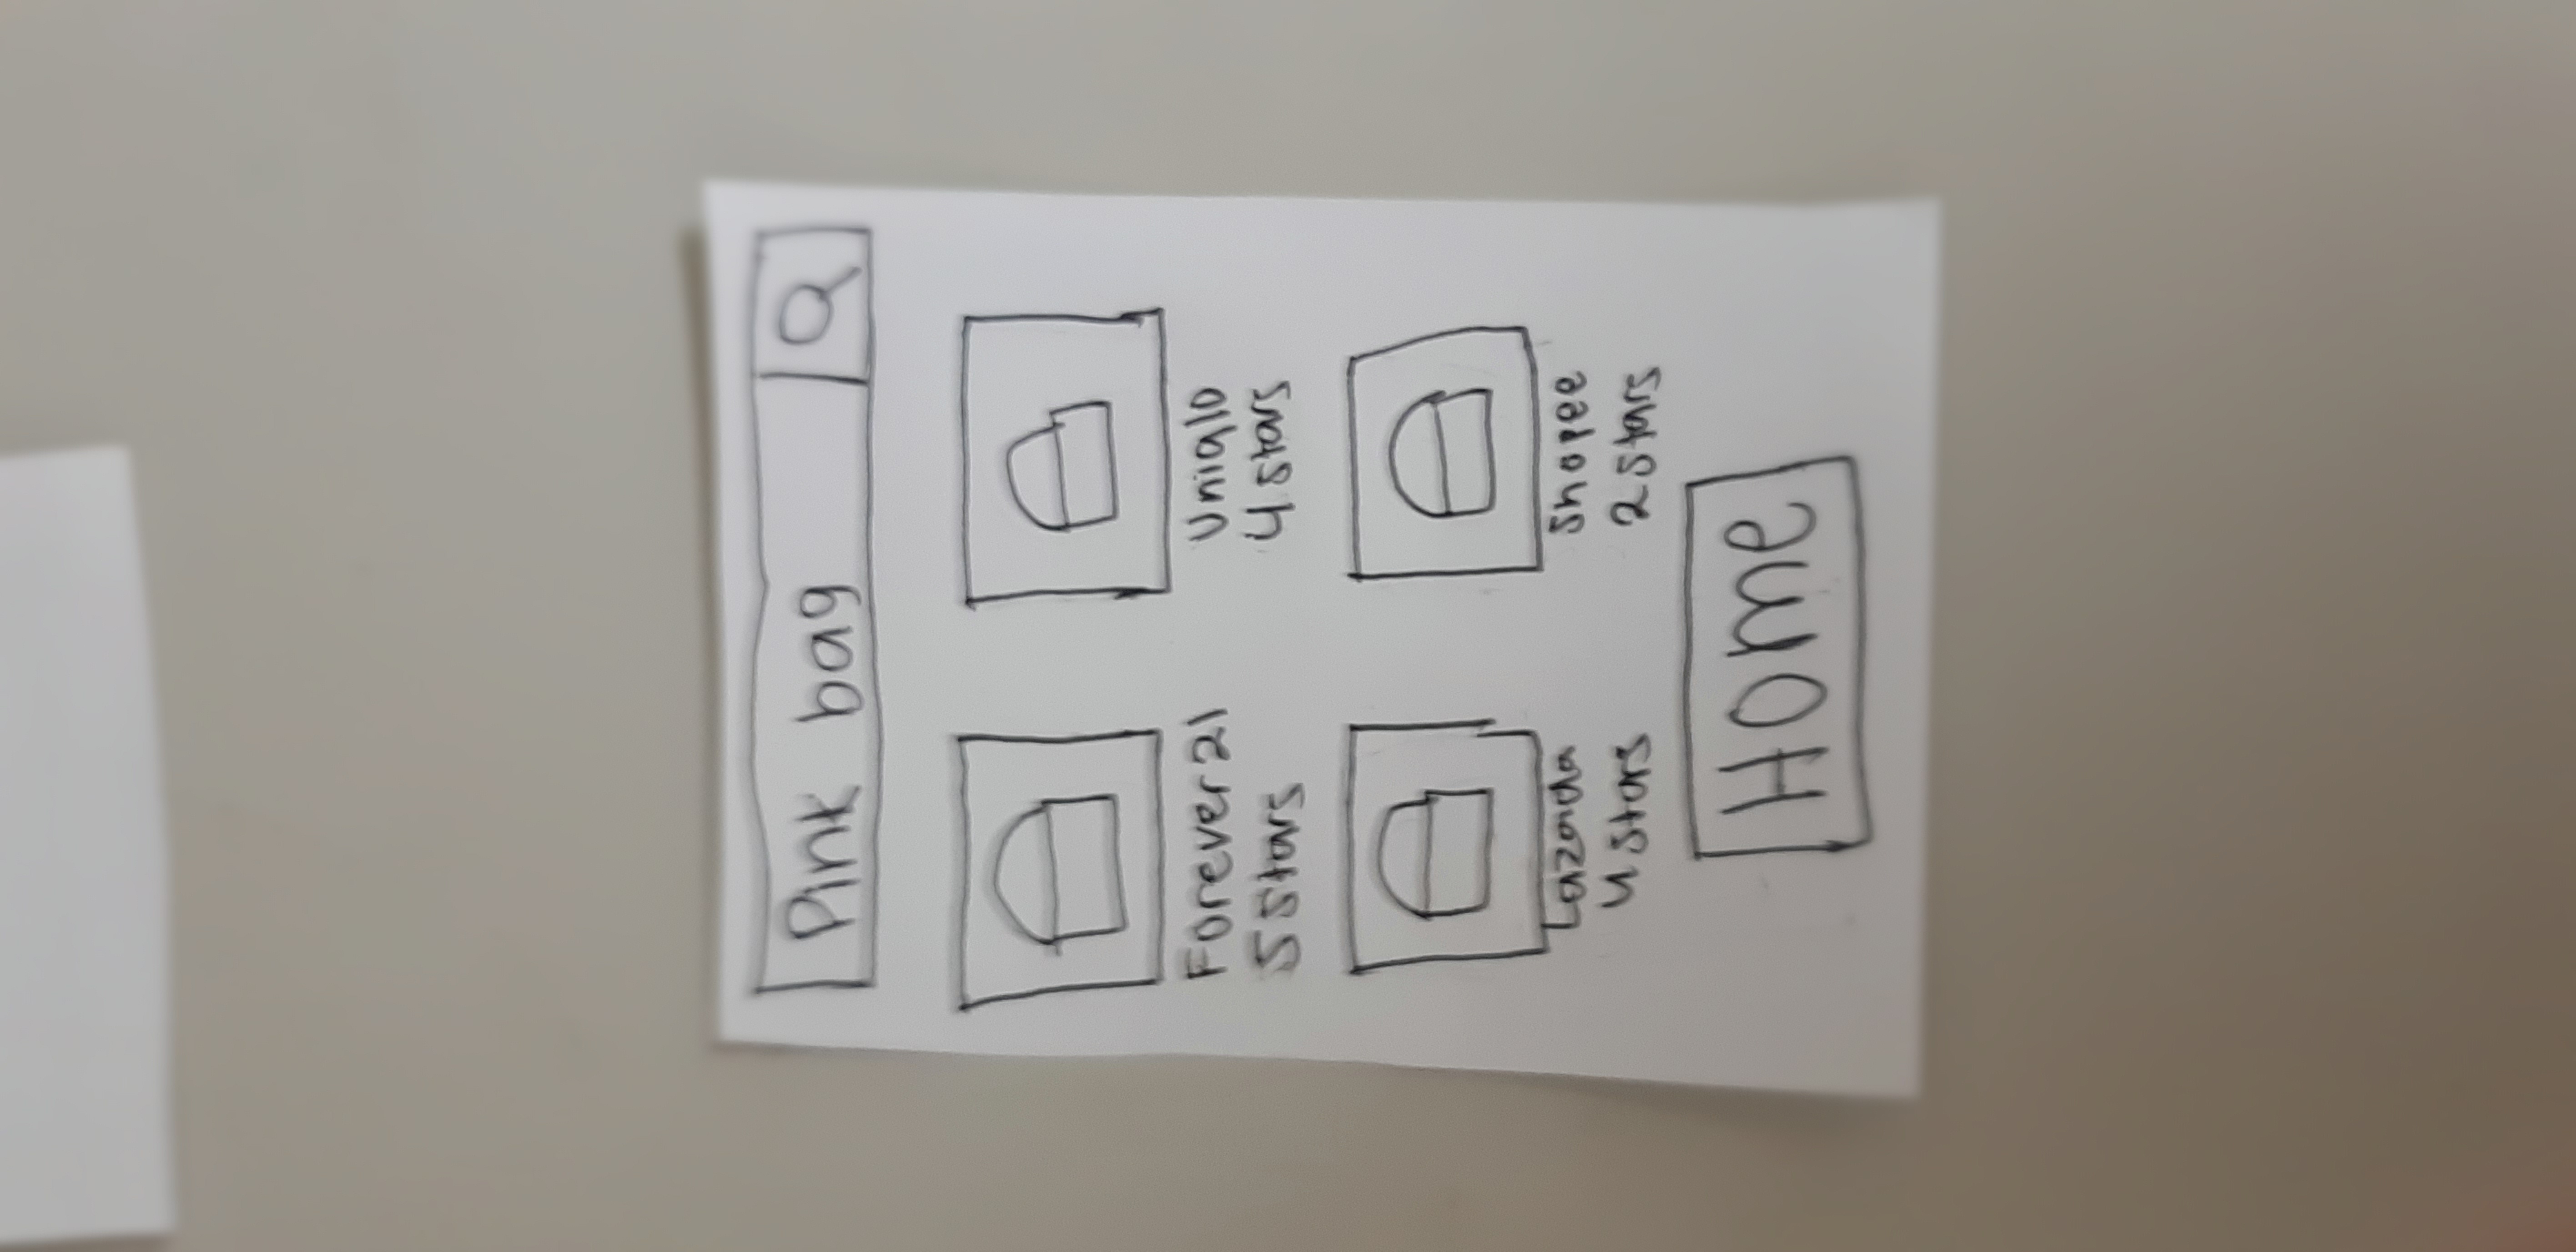 Pink bag
Forever 21
5 stars
Uniqlo
4 stars
Lazada
4 stars
Shopee
2 stars
Home